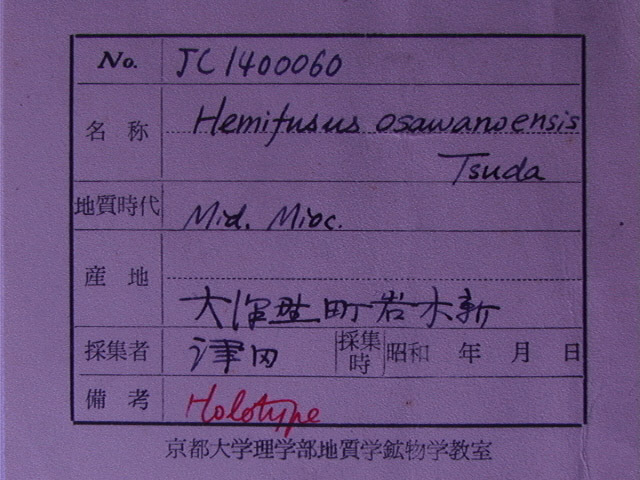 No. JC1400060
名称 Hemifusus osawanoensis
Tsuda
地質時代 Mid. Mioc.
産地
町岩木新
採集者 津田 採集時 昭和 年 月 日
備考 Holotype
京都大学理学部地質学鉱物学教室